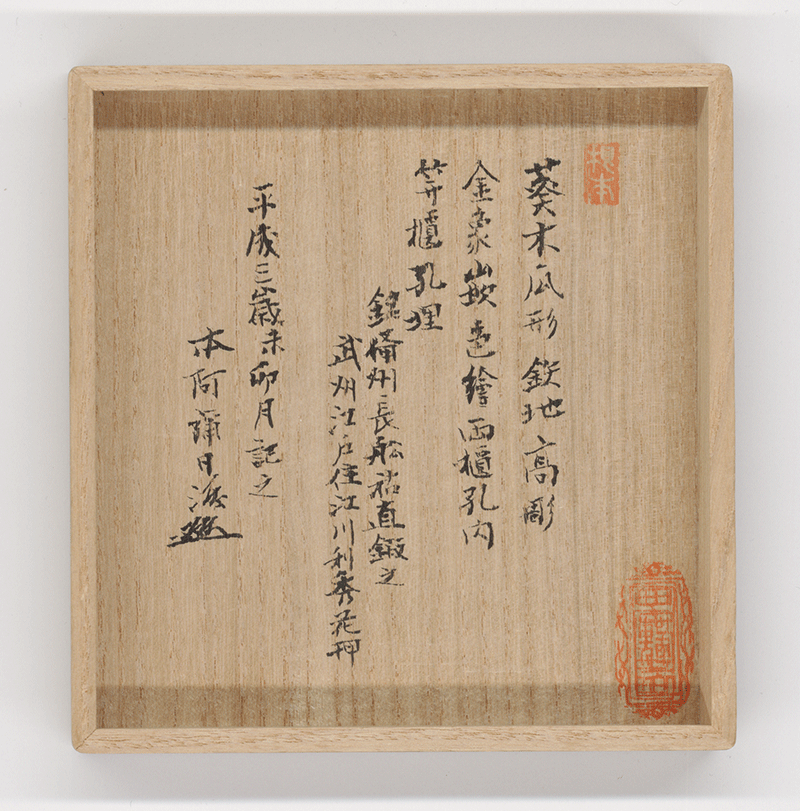 葵木瓜形 鉄地 高彫
金象嵌 色繪 両櫃孔内
笄櫃孔埋
銘 備州長舩祐直鍛之
武州江戸住江川利秀花押
平成三歳未卯月記之
本阿彌日洲